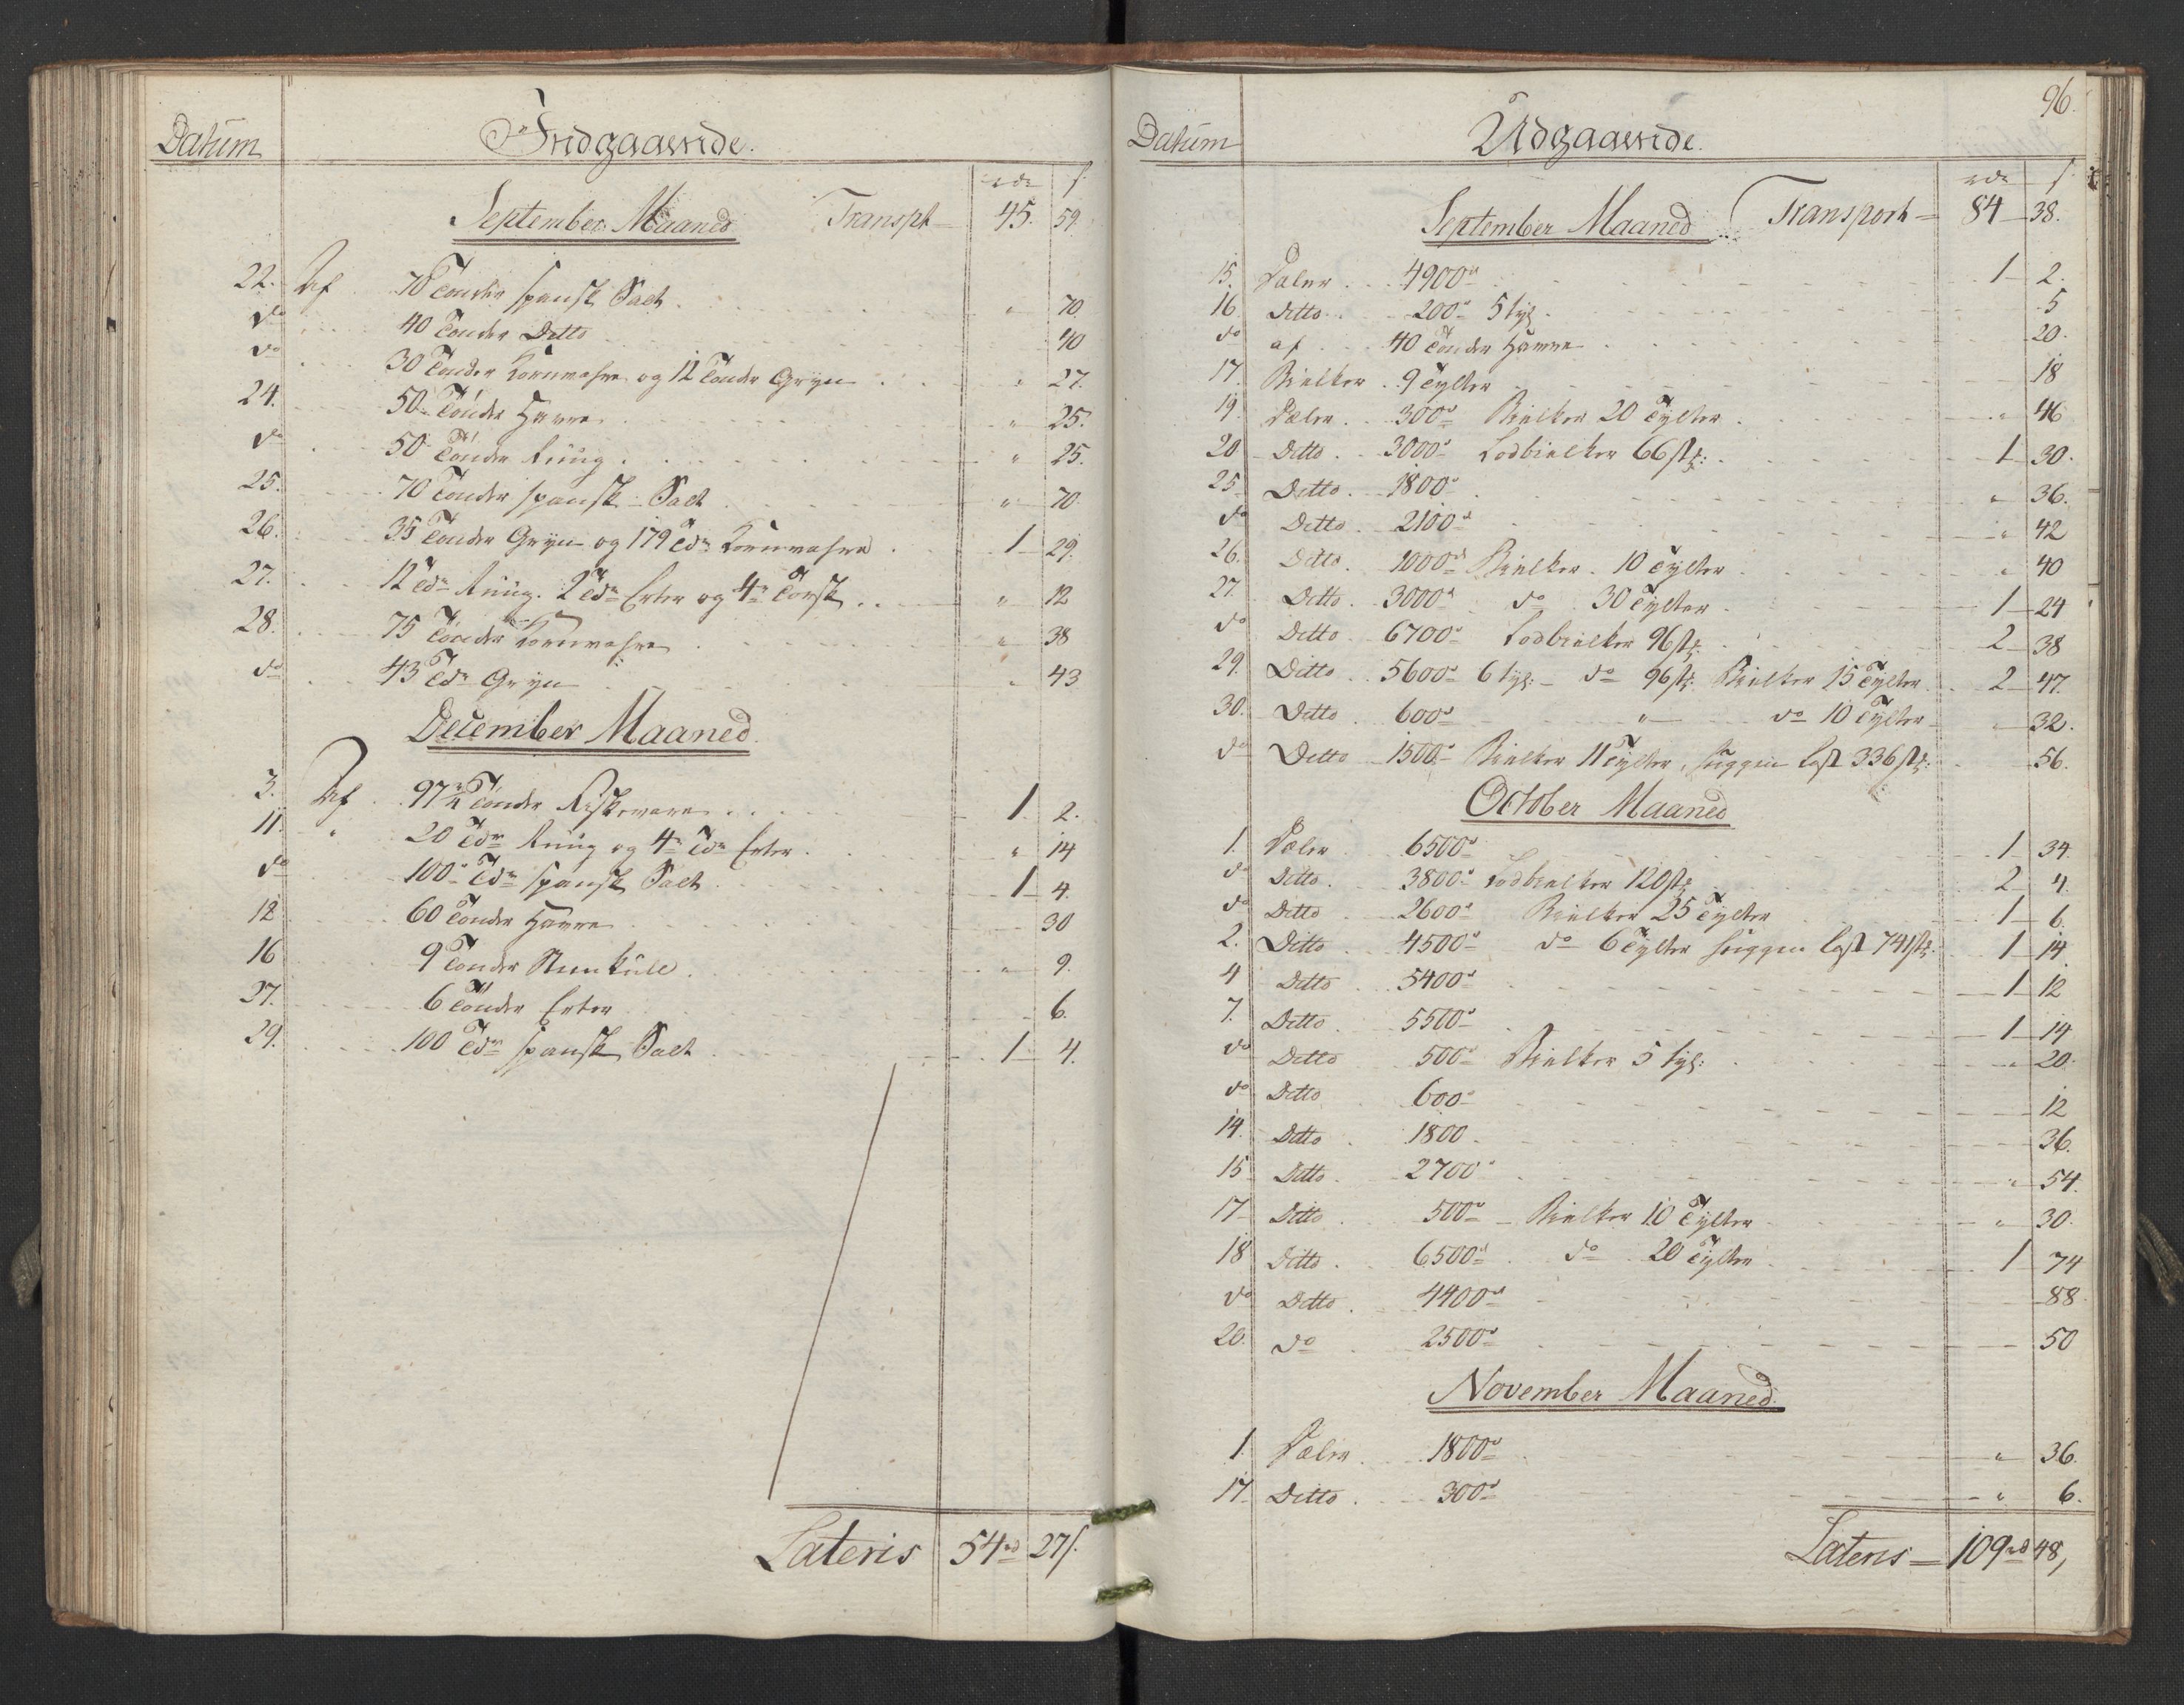 Datum
Indgaaende.
rdr s
September Maaned Transpt 45. 59.
22. Af 70 Tønder Spansk Salt " 70.
do 40 Tønder Ditto 40
do 30 Tønder Kornvahre og 12 Tønder Gryn " 27.
24. 50 Tønder Havre " 25.
do 50 Tønder Rüüg " 25.
25. 70 Tønder Spansk Salt " 70.
26. 35 Tønder Gryn og 179 Tdr Kornvahre 1 29.
27. 12 Tdr Rüüg. 2 Tdr Erter og 4 Torsk " 12
28. 75 Tønder Kornvahre " 38
do 43 Tdr Gryn " 43
December Maaned.
3. Af 97 1/2 Tønder Fiskevare 1 2.
11. " 20 Tdr Rüüg og 4 Tdr Erter " 14
do 100 Tdr Spansk Salt 1 4.
12 60 Tønder Havre 30
16 9 Tønder Steenküll " 9.
27. 6 Tønder Erter 6.
29. 100 Tdr Spansk Salt 1 4.
Lateris 54rd 27s.
96.
Datum
Udgaaende.
rdr s
September Maaned Transport 84 38.
15. Dæler 4900d 1 2.
16. Ditto 200d 5 tyl. 5
do af 40 Tønder Havre 20.
17. Bielker 9 Tylter 18
19. Dæler 300d Bielker 20 Tylter " 46
20 Ditto 3000d Lodbielker 66 st: 1 30.
25 Ditto 1800d " 36.
do Ditto 2100d " 42
26. Ditto 1000d Bielker 10 Tylter " 40
27. Ditto 3000d do 30 Tylter 1 24
do Ditto 6700d Lodbielker 96 st: 2 38
29. Ditto 5600d 6 tyl: do 96 st: Bielker 15 Tylter 2 47.
30. Ditto 600d " do 10 Tylter " 32.
do Ditto 1500d Bielker 11 Tylter, huggen last 336 st: 56.
October Maaned
1. Dæler 6500d 1 34.
do Ditto 3800d Lodbielker 120 st: 2 4.
do Ditto 2600d Bielker 25 Tylter 1 6.
2. Ditto 4500d do 6 Tylter huggen last 741 st: 1 14
4 Ditto 5400d 1 12
7. Ditto 5500d 1 14
do Ditto 500d Bielker 5 tyl: " 20.
do Ditto 600d 12
14. Ditto 1800 36.
15 Ditto 2700d " 54.
17 Ditto 500d Bielker 10 Tylter " 30.
18 Ditto 6500d do 20 Tylter 1 74
do Ditto 4400d 88
20. do 2500d 50
November Maaned.
1. Dæler 1800d " 36.
17. Ditto 300d " 6.
Lateris 109rd 48,